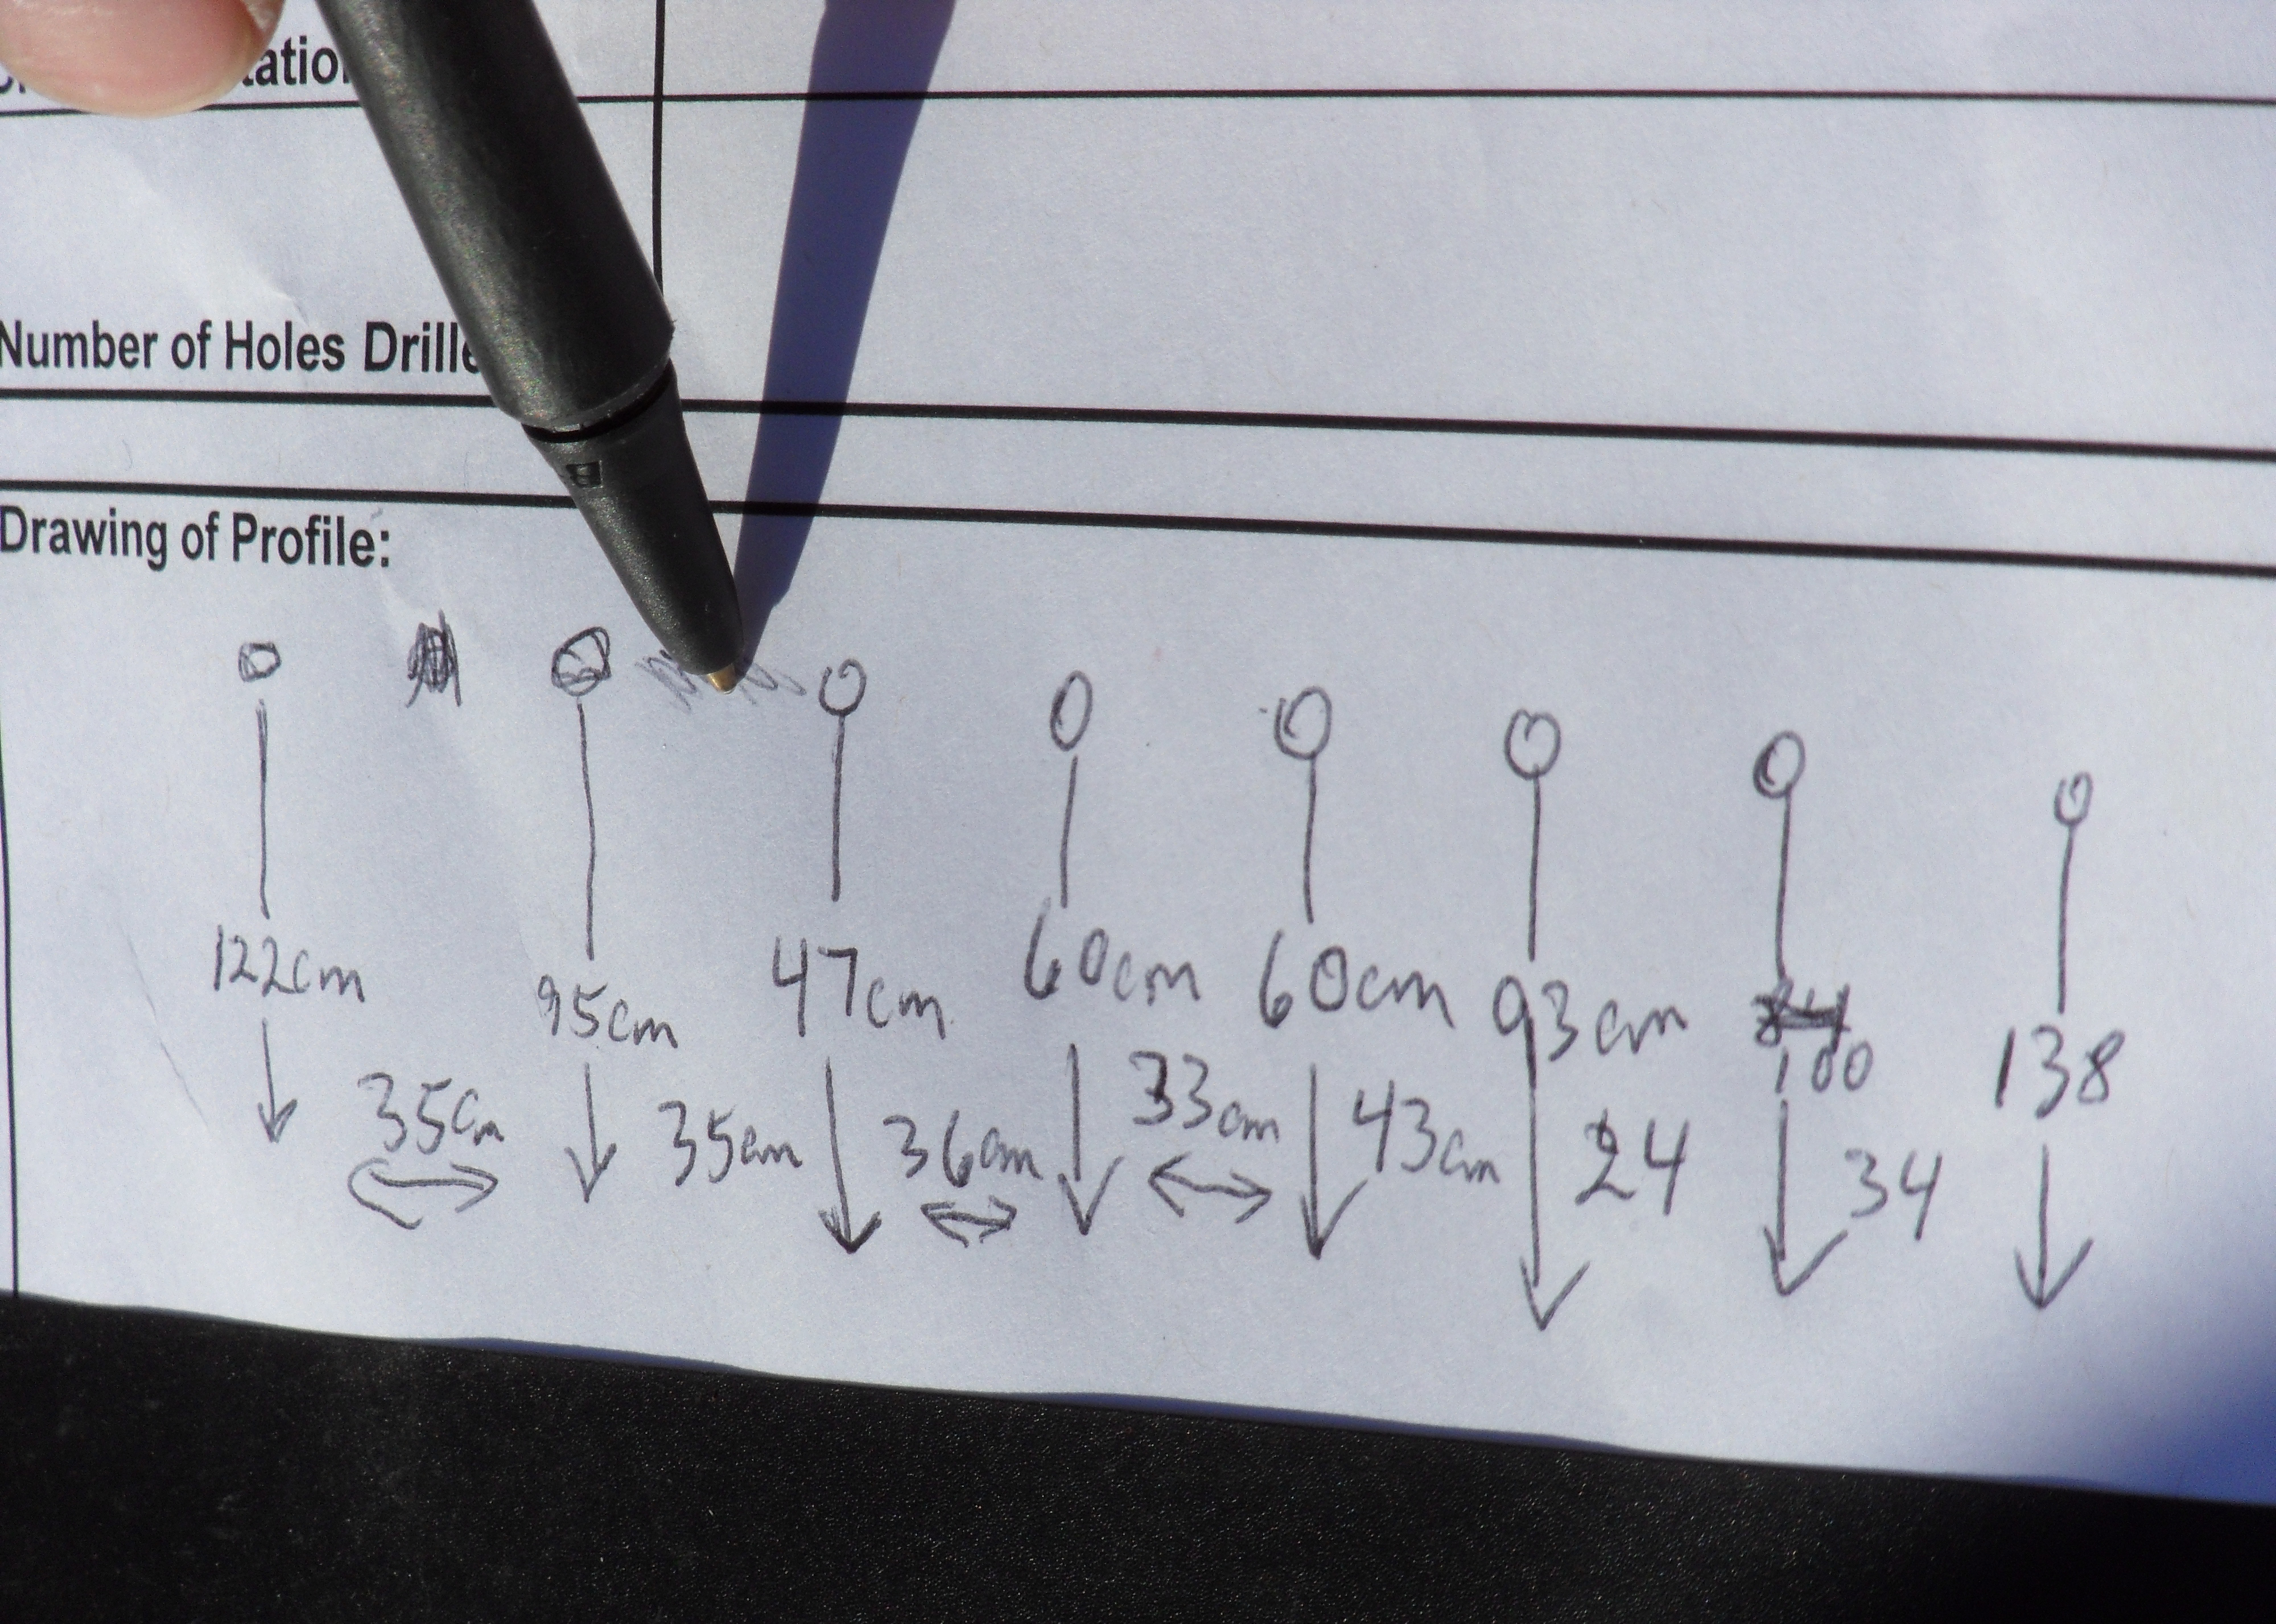 Number of Holes
Drawing of Profile:
122cm 95cm 47cm 60cm 60cm 93cm 84 138
100
35cm 35cm 36cm 33cm 43cm 24 34